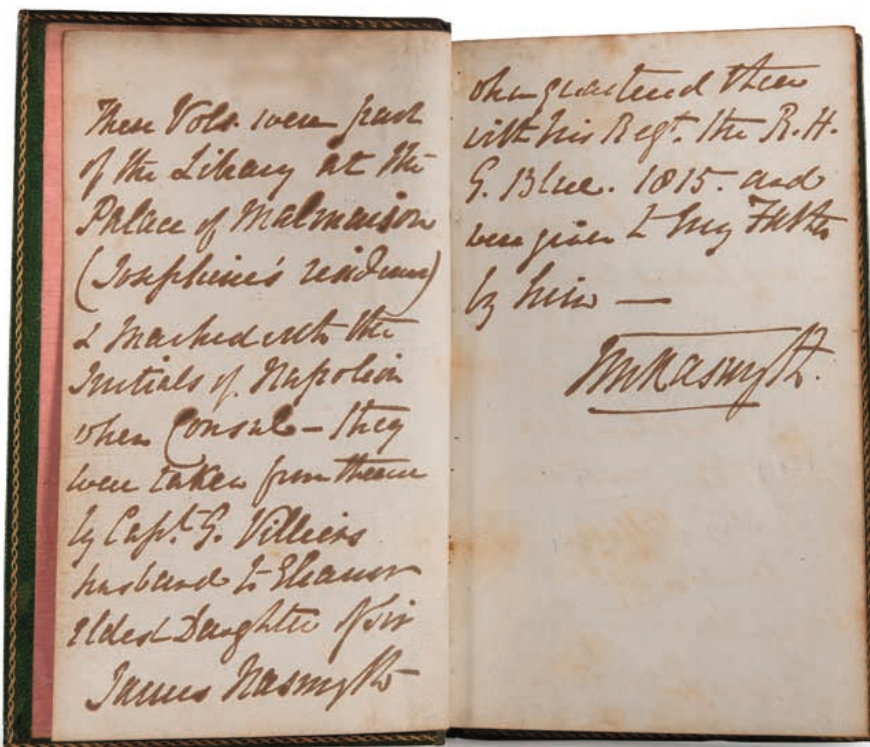 These Vols. were part
of the Library at the
Palace of Malmaison
(Josephine's residence)
& marked with the
Initials of Napoleon
when Consul — they
were taken from thence
by Capt. G. Villiers
husband to Eleanor
eldest Daughter of Sir
James Nasmyth
when quartered there
with his Regt. the R. H.
G. Blue. 1815. and
were given to my Father
by him —
Nasmyth.